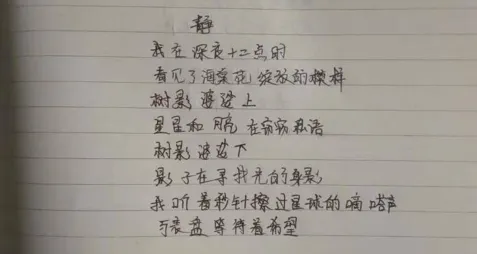 静
我在深夜十二点时
看见了海棠花绽放的模样
树影婆娑上
星星和月亮在窃窃私语
树影婆娑下
影子在寻找光的身影
我听着秒针擦过星球的嘀嗒声
与表盘等待着希望